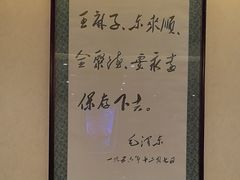 王麻子、东来顺、
全聚德，要永远
保存下去。
毛泽东
一九五六年十二月七日